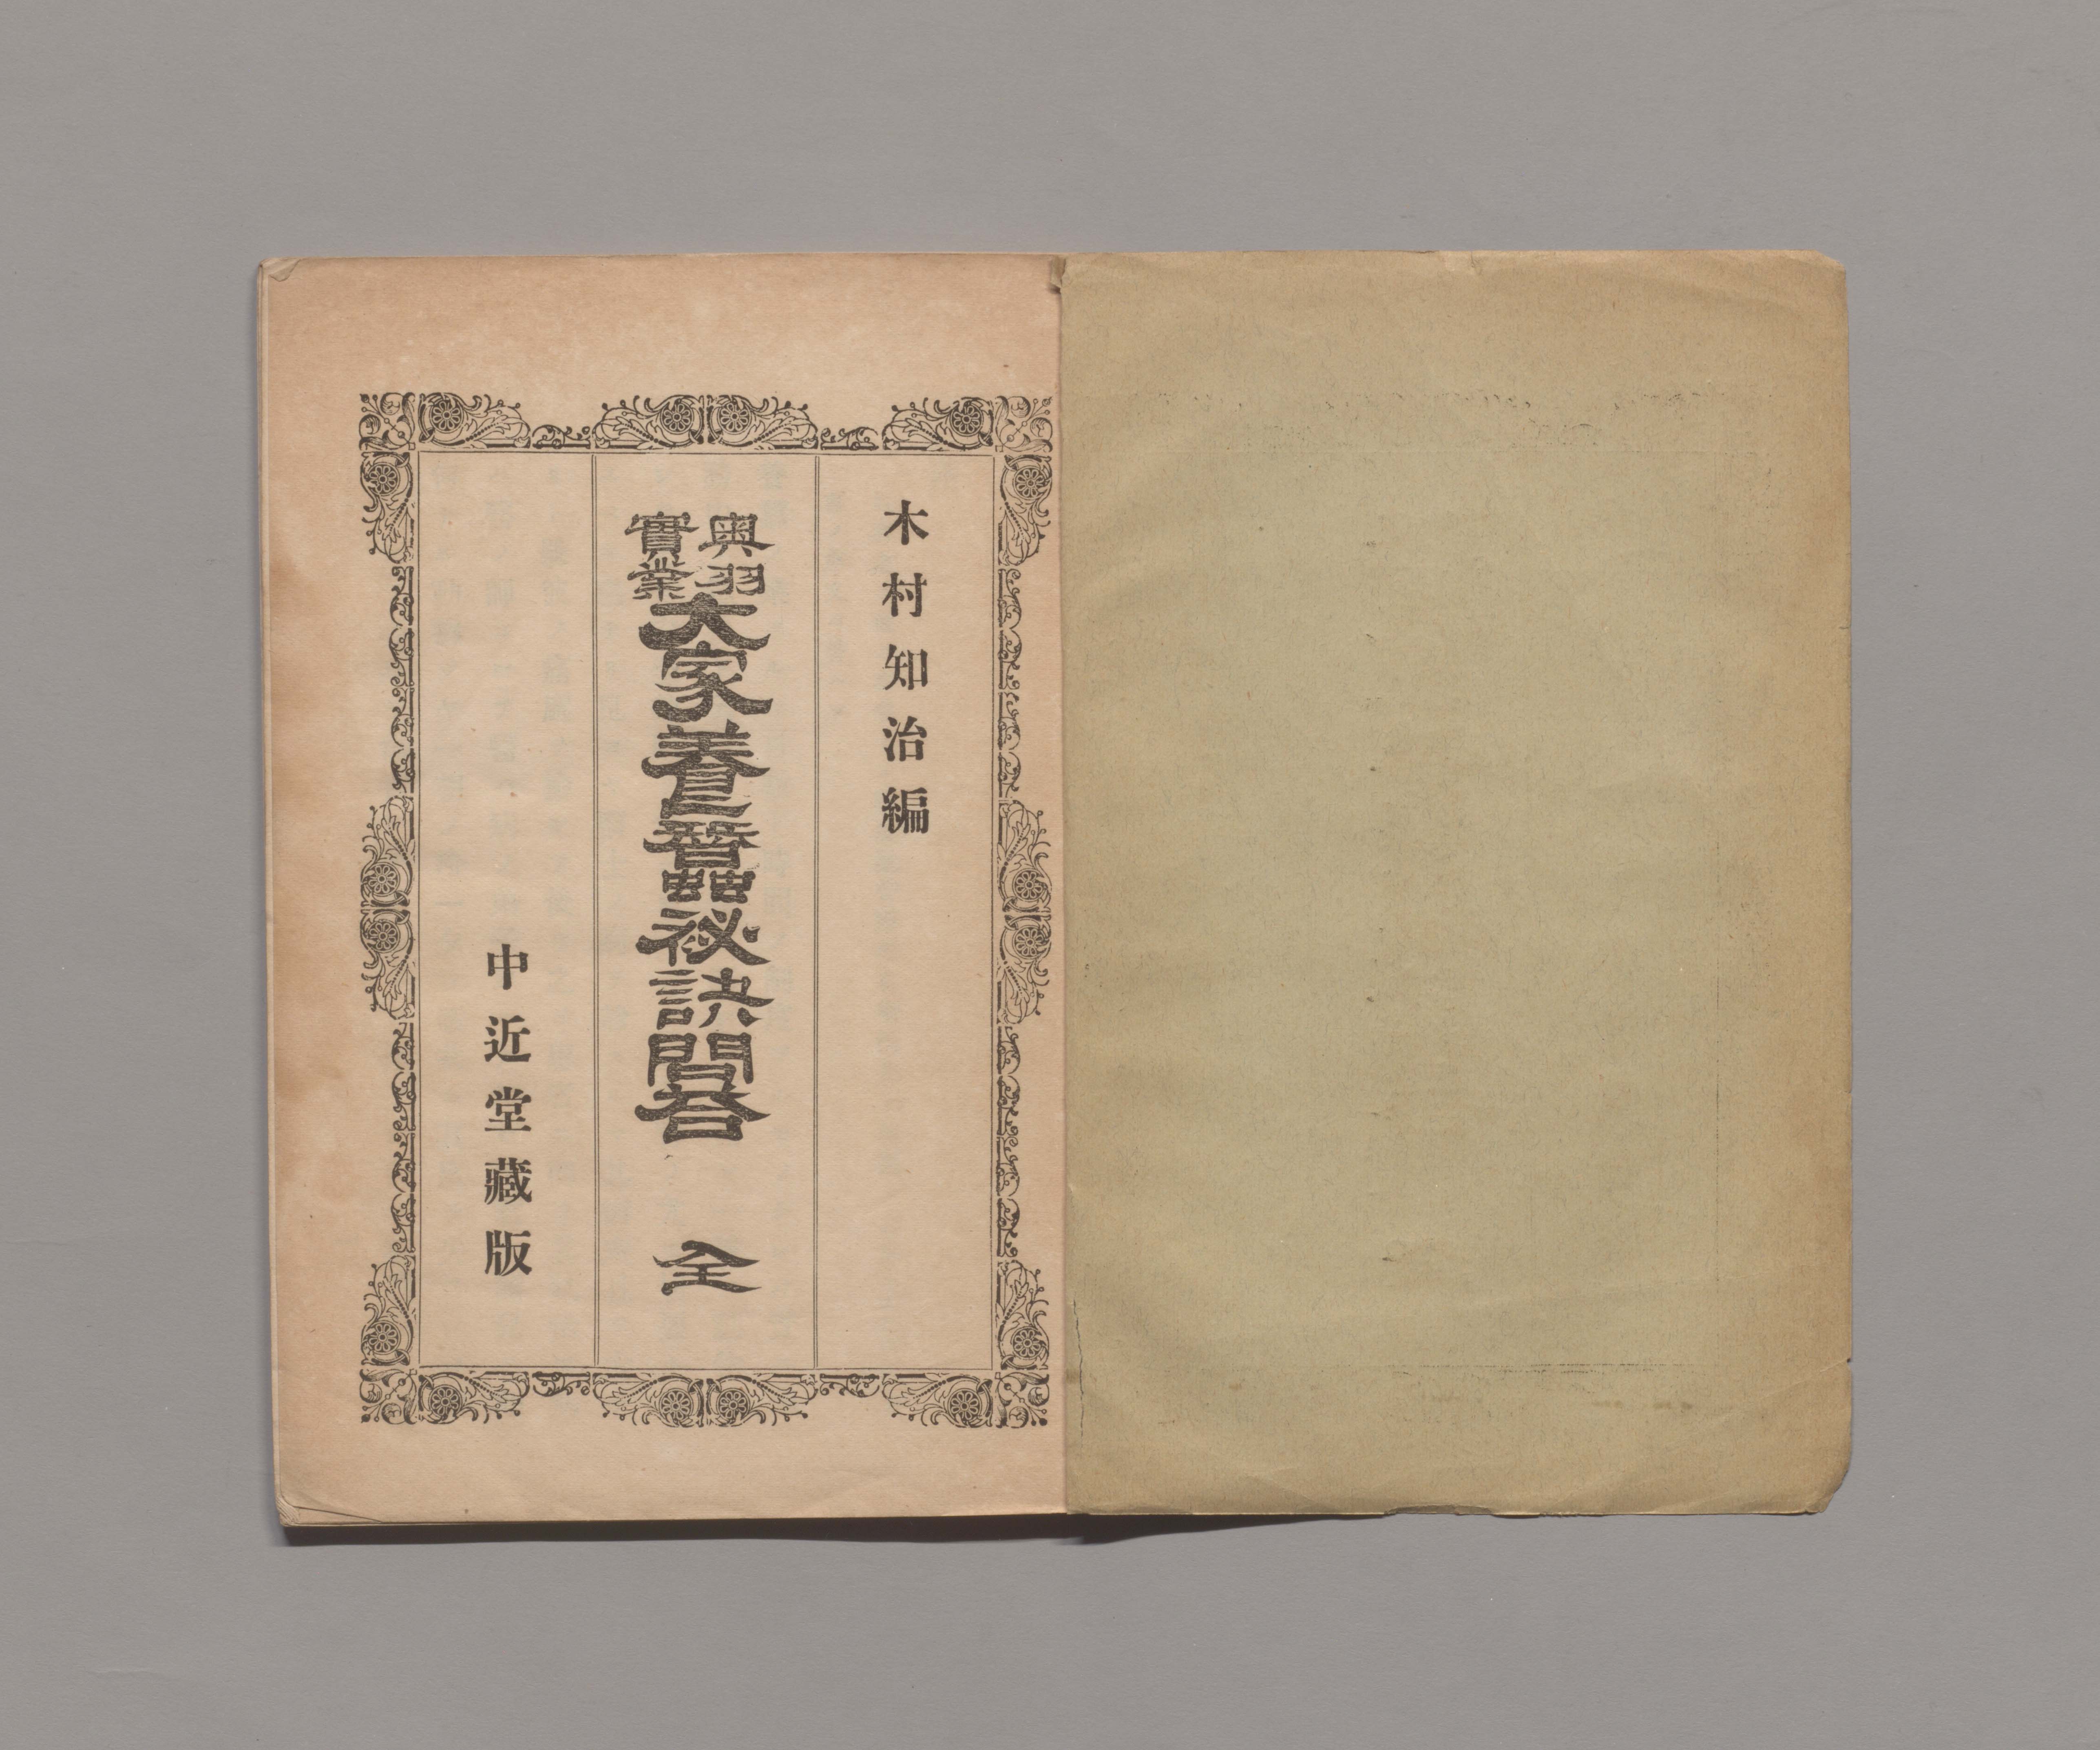 木村知治編
奥羽實業大家養蠶祕訣問答 全
中近堂藏版